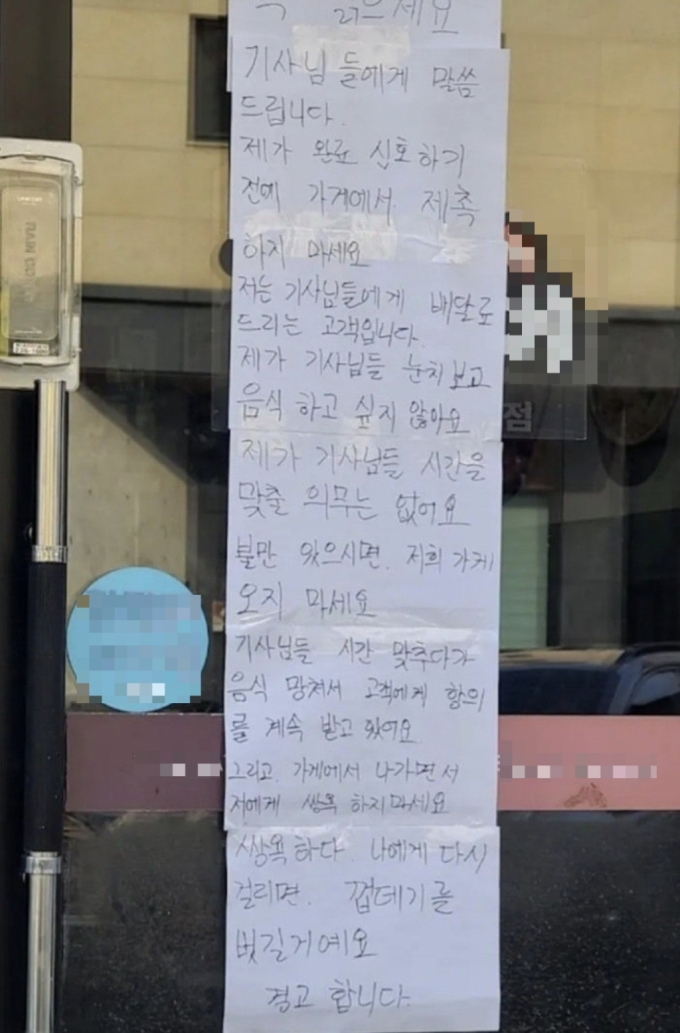 읽으세요
기사님들에게 말씀
드립니다.
제가 완료 신호하기
전에 가게에서 제촉
하지 마세요
저는 기사님들에게 배달로
드리는 고객입니다.
제가 기사님들 눈치보고
음식 하고 싶지 않아요
제가 기사님들 시간을
맞출 의무는 없어요
불만 있으시면. 저희 가게
오지 마세요
기사님들 시간 맞추다가
음식 망쳐서 고객에게 항의
를 계속 받고 있어요
그리고. 가게에서 나가면서
저에게 쌍욕 하지마세요
쌍욕하다. 나에게 다시
걸리면. 껍데기를
벗길거예요
경고 합니다.
점